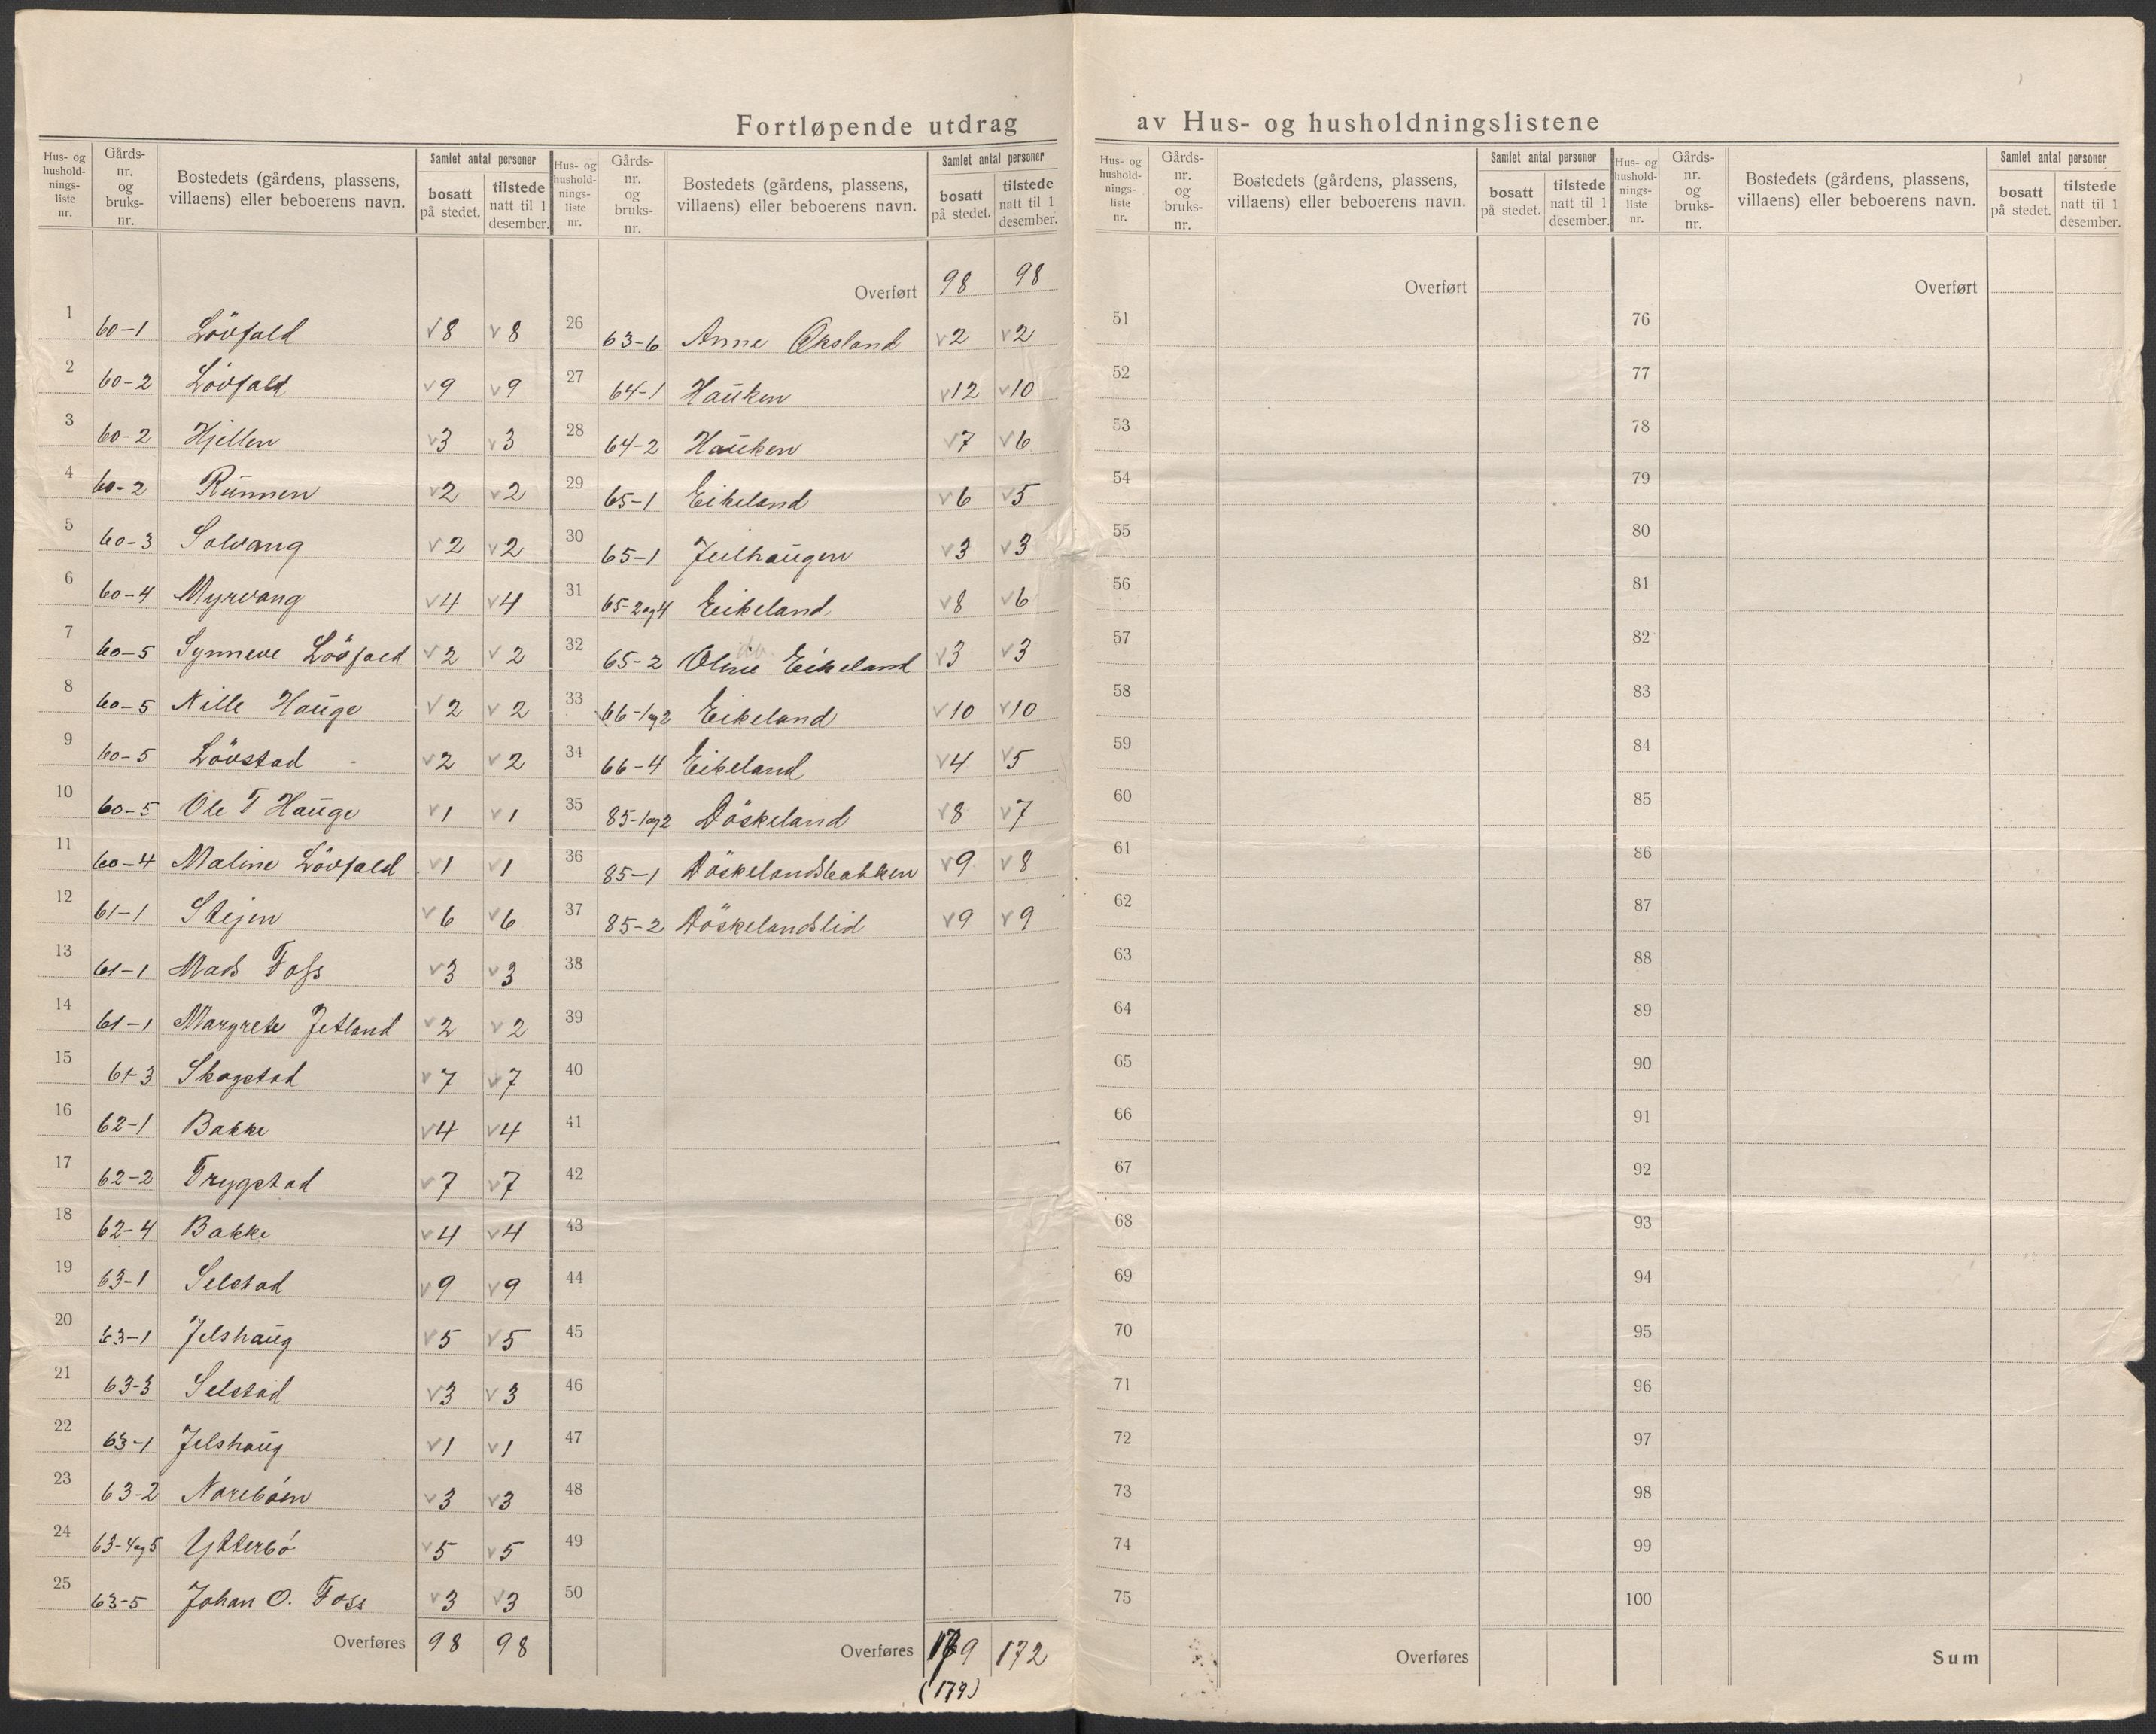 Fortløpende utdrag av Hus- og husholdningslistene
Hus- og hushold-nings-liste nr. | Gårds-nr. og bruks-nr. | Bostedets (gårdens, plassens, villaens) eller beboerens navn. | Samlet antal personer | bosatt på stedet. | tilstede natt til 1 desember.
1 60-1 Lövfald v8 v8
2 60-2 Lövfald v9 v9
3 60-2 Hjellen v3 v3
4 60-2 Runnen v2 v2
5 60-3 Solvang v2 v2
6 60-4 Myrvang v4 v4
7 60-5 Synneve Lövfald v2 v2
8 60-5 Nille Hauge v2 v2
9 60-5 Lövstad v2 v2
10 60-5 Ole T Hauge v1 v1
11 60-4 Maline Lövfald v1 v1
12 61-1 Stejen v6 v6
13 61-1 Mads Foss v3 v3
14 61-1 Margrete Jetland v2 v2
15 61-3 Skogstad v7 v7
16 62-1 Bakke v4 v4
17 62-2 Trygstad v7 v7
18 62-4 Bakke v4 v4
19 63-1 Selstad v9 v9
20 63-1 Jelshaug v5 v5
21 63-3 Selstad v3 v3
22 63-1 Jelshaug v1 v1
23 63-2 Noreböen v3 v3
24 63-4og5 Ytterbö v5 v5
25 63-5 Johan O. Foss v3 v3
Overføres 98 98
Hus- og hushold-nings-liste nr. | Gårds-nr. og bruks-nr. | Bostedets (gårdens, plassens, villaens) eller beboerens navn. | Samlet antal personer | bosatt på stedet. | tilstede natt til 1 desember.
Overført 98 98
26 63-6 Anne Oksland v2 v2
27 64-1 Hauken v12 v10
28 64-2 Hauken v7 v6
29 65-1 Eikeland v6 v5
30 65-1 Jeilhaugen v3 v3
31 65-2og4 Eikeland v8 v6
32 65-2 Oline Eikeland v3 v3
33 66-1og2 Eikeland v10 v10
34 66-4 Eikeland v4 v5
35 85-1og2 Döskeland v8 v7
36 85-1 Döskelandsbakken v9 v8
37 85-2 Döskelandslid v9 v9
38
39
40
41
42
43
44
45
46
47
48
49
50
Overføres 179 172
(179)
Hus- og hushold-nings-liste nr. | Gårds-nr. og bruks-nr. | Bostedets (gårdens, plassens, villaens) eller beboerens navn. | Samlet antal personer | bosatt på stedet. | tilstede natt til 1 desember.
Overført
51
52
53
54
55
56
57
58
59
60
61
62
63
64
65
66
67
68
69
70
71
72
73
74
75
Overføres
Hus- og hushold-nings-liste nr. | Gårds-nr. og bruks-nr. | Bostedets (gårdens, plassens, villaens) eller beboerens navn. | Samlet antal personer | bosatt på stedet. | tilstede natt til 1 desember.
Overført
76
77
78
79
80
81
82
83
84
85
86
87
88
89
90
91
92
93
94
95
96
97
98
99
100
Sum